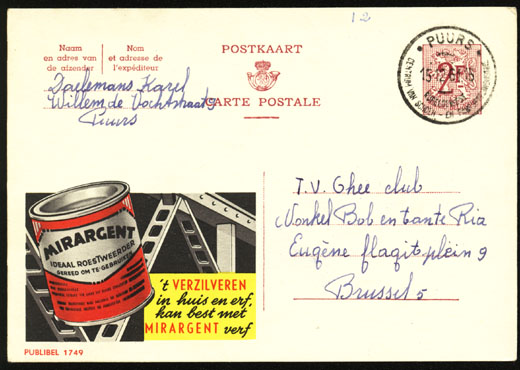 12
Naam
en adres van
de afzender
Nom
et adresse de
l'expéditeur
POSTKAART
CARTE POSTALE
PUURS
2F
Daelemans Karel
Willem de Vochtstraat 9
Puurs
T.V. Ghee club
Nonkel Bob en tante Ria
Eugène flagit plein 9
Brussel 5
MIRARGENT
IDEAAL ROESTWEERDER
GEREED OM TE GEBRUIKEN
't VERZILVEREN
in huis en erf,
kan best met
MIRARGENT verf
PUBLIBEL 1749